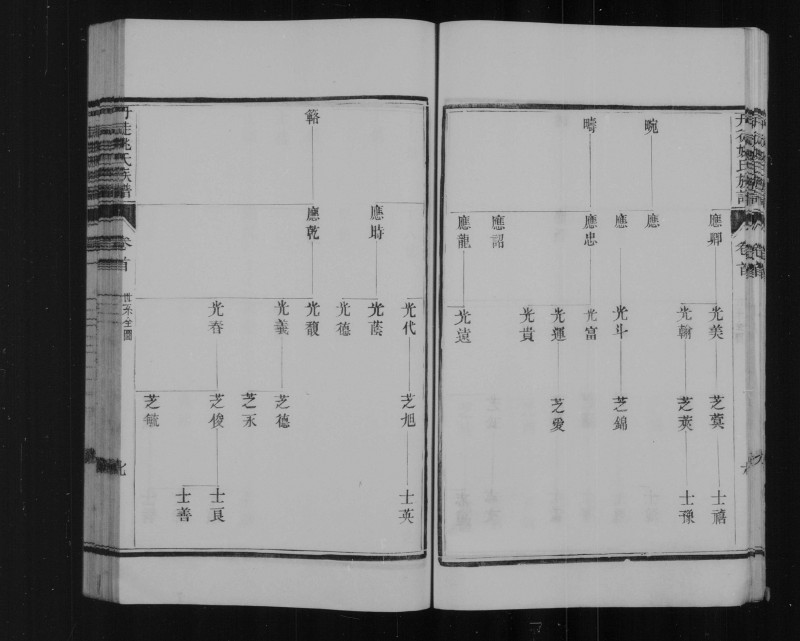 丹徒姚氏族譜
卷首
畹
疇
應卿
應
應
應忠
應詔
應龍
光美
光翰
光斗
光富
光運
光貴
光遠
芝蓂
芝葇
芝錦
芝愛
士禧
士豫
丹徒姚氏族譜
卷首
世系全圖
七
輅
應時
應乾
光代
光蔭
光德
光馥
光義
光春
芝旭
芝德
芝永
芝俊
芝毓
士英
士良
士善